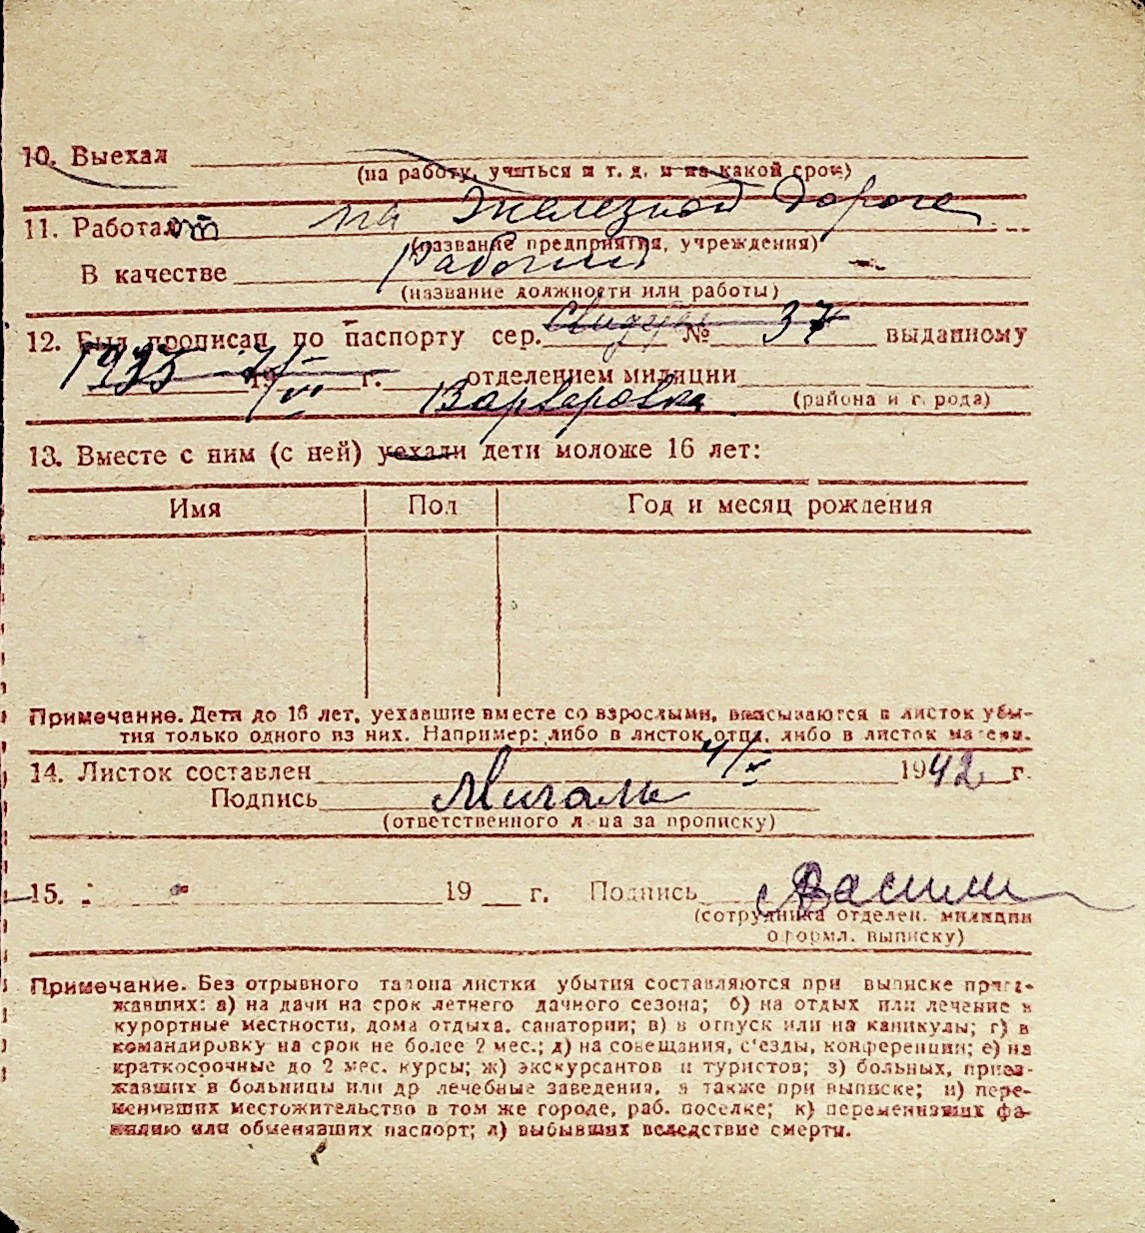 10. Выехал
(на работу, учиться и т. д. и на какой срок)
11. Работает на Железной Дороге
(название предприятия, учреждения)
В качестве Рабочий
(название должности или работы)
12. Был прописан по паспорту сер. № 37 выданному
1935 19 г. Варваровка отделением милиции
(района и города)
13. Вместе с ним (с ней) уехали дети моложе 16 лет:
Имя Пол Год и месяц рождения
Примечание. Дети до 16 лет, уехавшие вместе со взрослыми, вписываются в листок убы-
тия только одного из них. Например: либо в листок отца, либо в листок матери.
14. Листок составлен 4/V 1942 г.
Подпись
(ответственного лица за прописку)
15. 19 г. Подпись
(сотрудника отделен. милиции
оформл. выписку)
Примечание. Без отрывного талона листки убытия составляются при выписке приез-
жавших: а) на дачи на срок летнего дачного сезона; б) на отдых или лечение в
курортные местности, дома отдыха, санатории; в) в отпуск или на каникулы; г) в
командировку на срок не более 2 мес.; д) на совещания, с'езды, конференции; е) на
краткосрочные до 2 мес. курсы; ж) экскурсантов и туристов; з) больных, приез-
жавших в больницы или др лечебные заведения, а также при выписке; и) пере-
менивших местожительство в том же городе, раб. поселке; к) переменивших фа-
милию или обменявших паспорт; л) выбывших вследствие смерти.